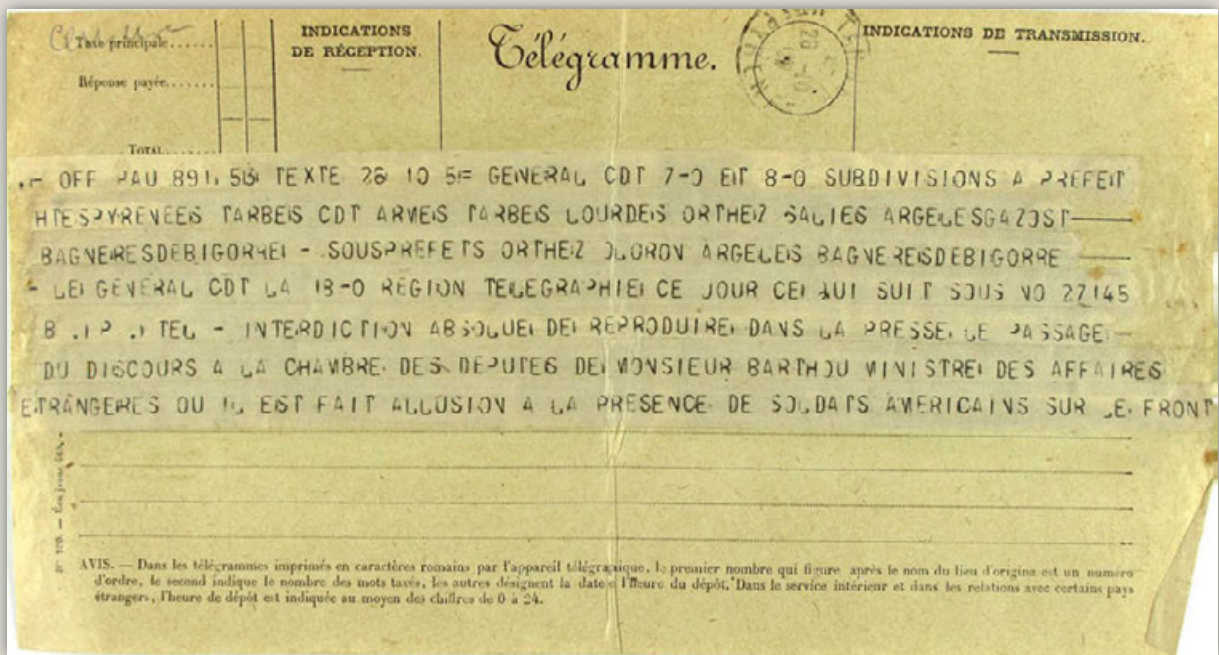 Taxe principale......
Réponse payée.......
TOTAL.......
INDICATIONS
DE RÉCEPTION.
Télégramme.
INDICATIONS DE TRANSMISSION.
OFF PAU 891 TEXTE 28 10 5= GENERAL CDT 7-0 EIT 8-0 SUBDIVISIONS A PREFEIT
HTESPYRENEES TARBEIS CDT ARMEIS TARBEIS LOURDEIS ORTHEIZ SALIES ARGELESGAZOST
BAGNERESDEBIGORREI - SOUSPREFETS ORTHEZ OLORON ARGELEIS BAGNEREISDEBIGORRE
- LEI GENERAL CDT LA 18-0 REGION TELEGRAPHIEI CE JOUR CEI QUI SUIT SOUS NO 27145
B .I P .I TEL - INTERDICTION ABSOLUEI DEI REPRODUIREI DANS LA PRESSE LE PASSAGEI -
DU DISCOURS A LA CHAMBRE DES DEPUTES DEI MONSIEUR BARTHOU MINISTREI DES AFFAIRES
ETRANGEIRES OU IL EIST FAIT ALLUSION A LA PRESENCE DE SOLDATS AMERICAINS SUR LE FRONT
AVIS. — Dans les télégrammes imprimés en caractères romains par l'appareil télégraphique, le premier nombre qui figure après le nom du lieu d'origine est un numéro
d'ordre, le second indique le nombre des mots taxés, les autres désignent la date et l'heure du dépôt. Dans le service intérieur et dans les relations avec certains pays
étrangers, l'heure de dépôt est indiquée au moyen des chiffres de 0 à 24.